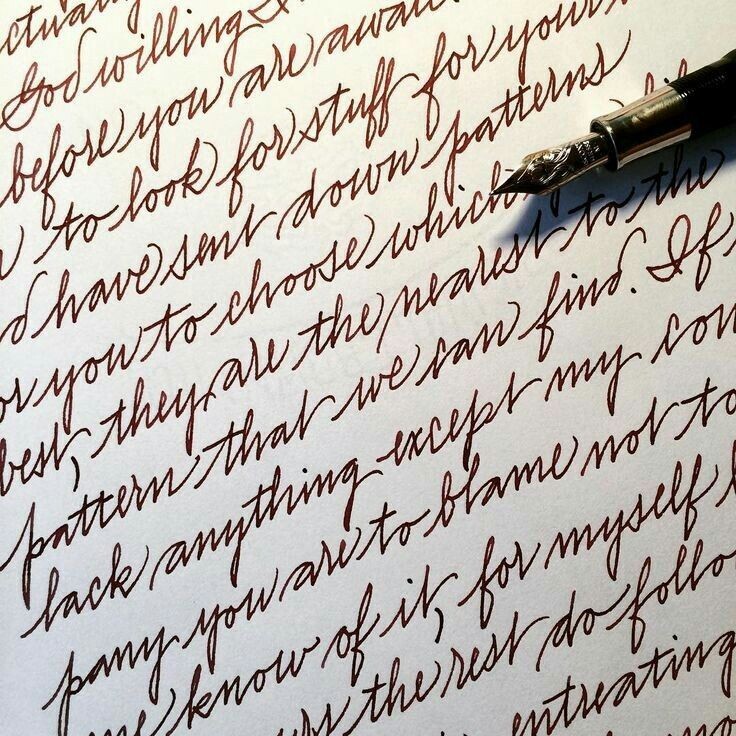 God willing I
before you are awai
to look for stuff for your
have sent down patterns
you to choose which
best, they are the nearest to the
pattern that we can find. If
lack anything except my com
pany you are to blame not to
me know of it, for myself
the rest do follo
entreating